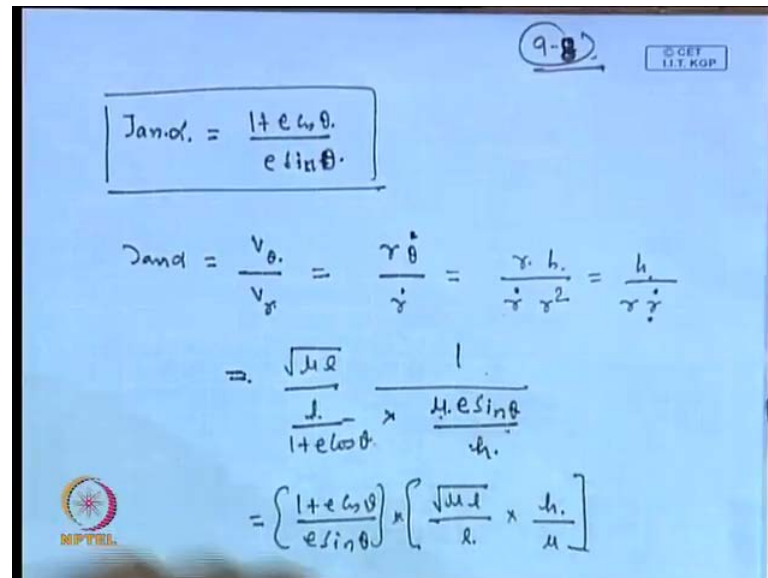 9-8
© CET
I.I.T. KGP
Tan α. = 1+ e cos θ. / e sin θ.
Tan α = Vθ. / Vr = r θ̇ / ṙ = r. h. / ṙ r² = h. / r ṙ
=. √μl / (l / 1+e cos θ) × 1 / (μ. e sin θ / h.)
= {1+e cos θ / e sin θ} × [√μl / l. × h. / μ]
NPTEL